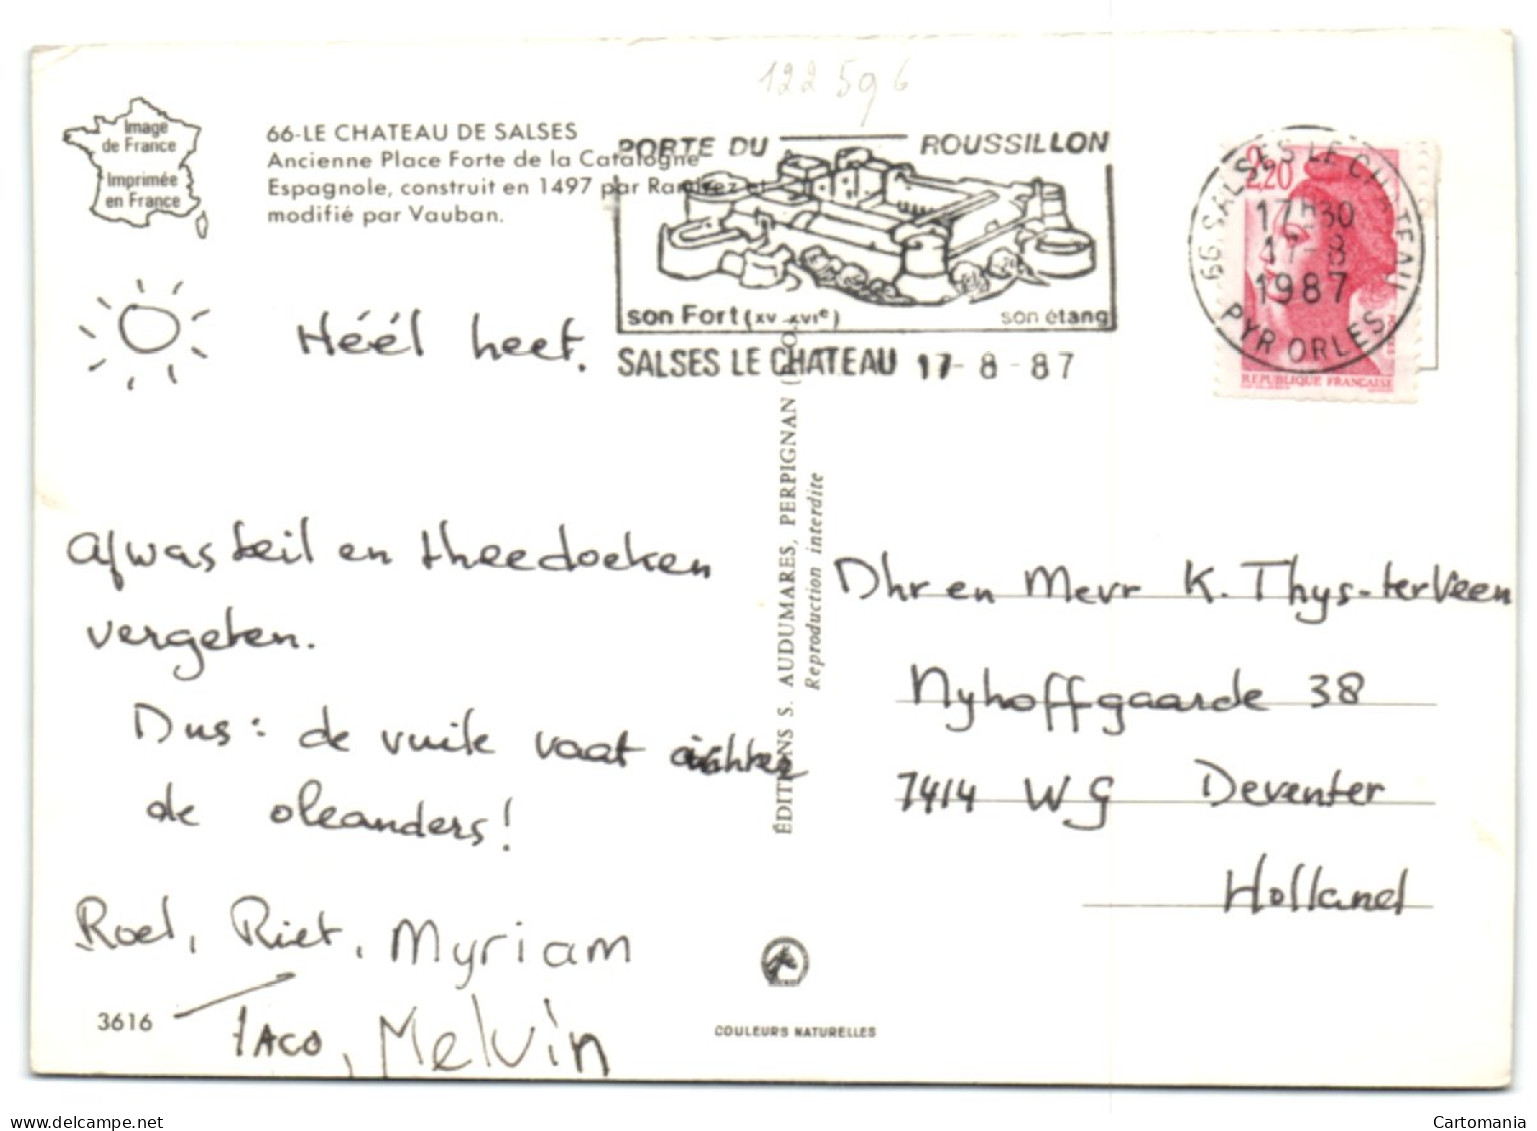 122596
Image
de France
Imprimée
en France
66-LE CHATEAU DE SALSES
Ancienne Place Forte de la Catalogne
Espagnole, construit en 1497 par Ramirez et
modifié par Vauban.
PORTE DU ROUSSILLON
son Fort (XV XVIe) son étang
SALSES LE CHATEAU 17-8-87
2,20
66 SALSES LE CHATEAU
17H30
17-8
1987
PYR ORLES
REPUBLIQUE FRANÇAISE
Héél heet.
Afwasteil en theedoeken
vergeten.
Dus: de vuile vaat achter
de oleanders!
Roel, Riet, Myriam
Taco, Melvin
3616
ÉDITIONS S. AUDUMARES, PERPIGNAN
Reproduction interdite
COULEURS NATURELLES
Dhr en Mevr K. Thys-terVeen
Nyhoffgaarde 38
7414 WG Deventer
Holland
delcampe.net
Cartomania